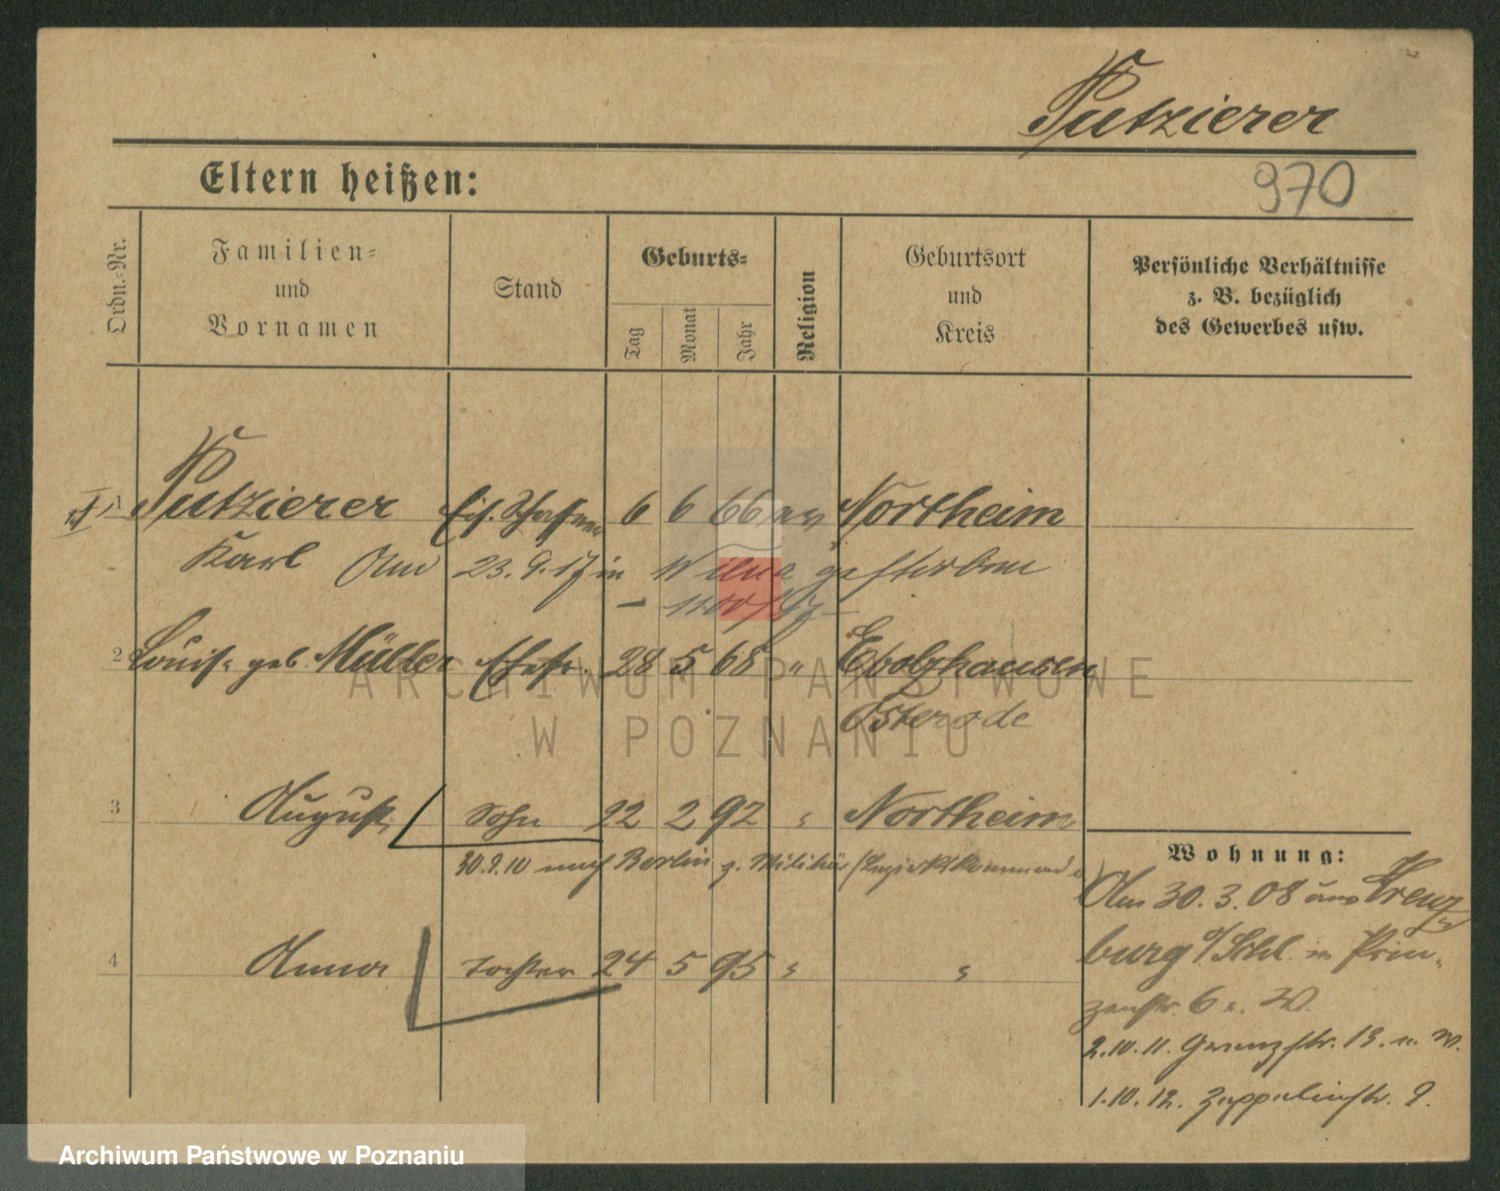 Putzierer
Eltern heißen:
970
Ordn.-Nr.
Familien-
und
Vornamen
Stand
Geburts-
Tag
Monat
Jahr
Religion
Geburtsort
und
Kreis
Persönliche Verhältnisse
z. B. bezüglich
des Gewerbes usw.
1 Putzierer Eis. Schaffner 6 6 66 ev Northeim
Karl Am 23.9.17 in Wilna gestorben
2 Louise geb. Müller Ehefr. 28 5 68 " Osterode
3 August Sohn 22 2 92 " Northeim
30.9.10 nach Berlin z. Militär
4 Anna Tochter 24 5 95 " "
Wohnung:
Am 30.3.08 aus Kreuz-
burg O/Schl. in Prin-
zenstr. 6 e. W.
2.10.11. Grenzstr. 13. u. W.
1.10.12. Zeppelinstr. 9.
ARCHIWUM PAŃSTWOWE
W POZNANIU
Archiwum Państwowe w Poznaniu